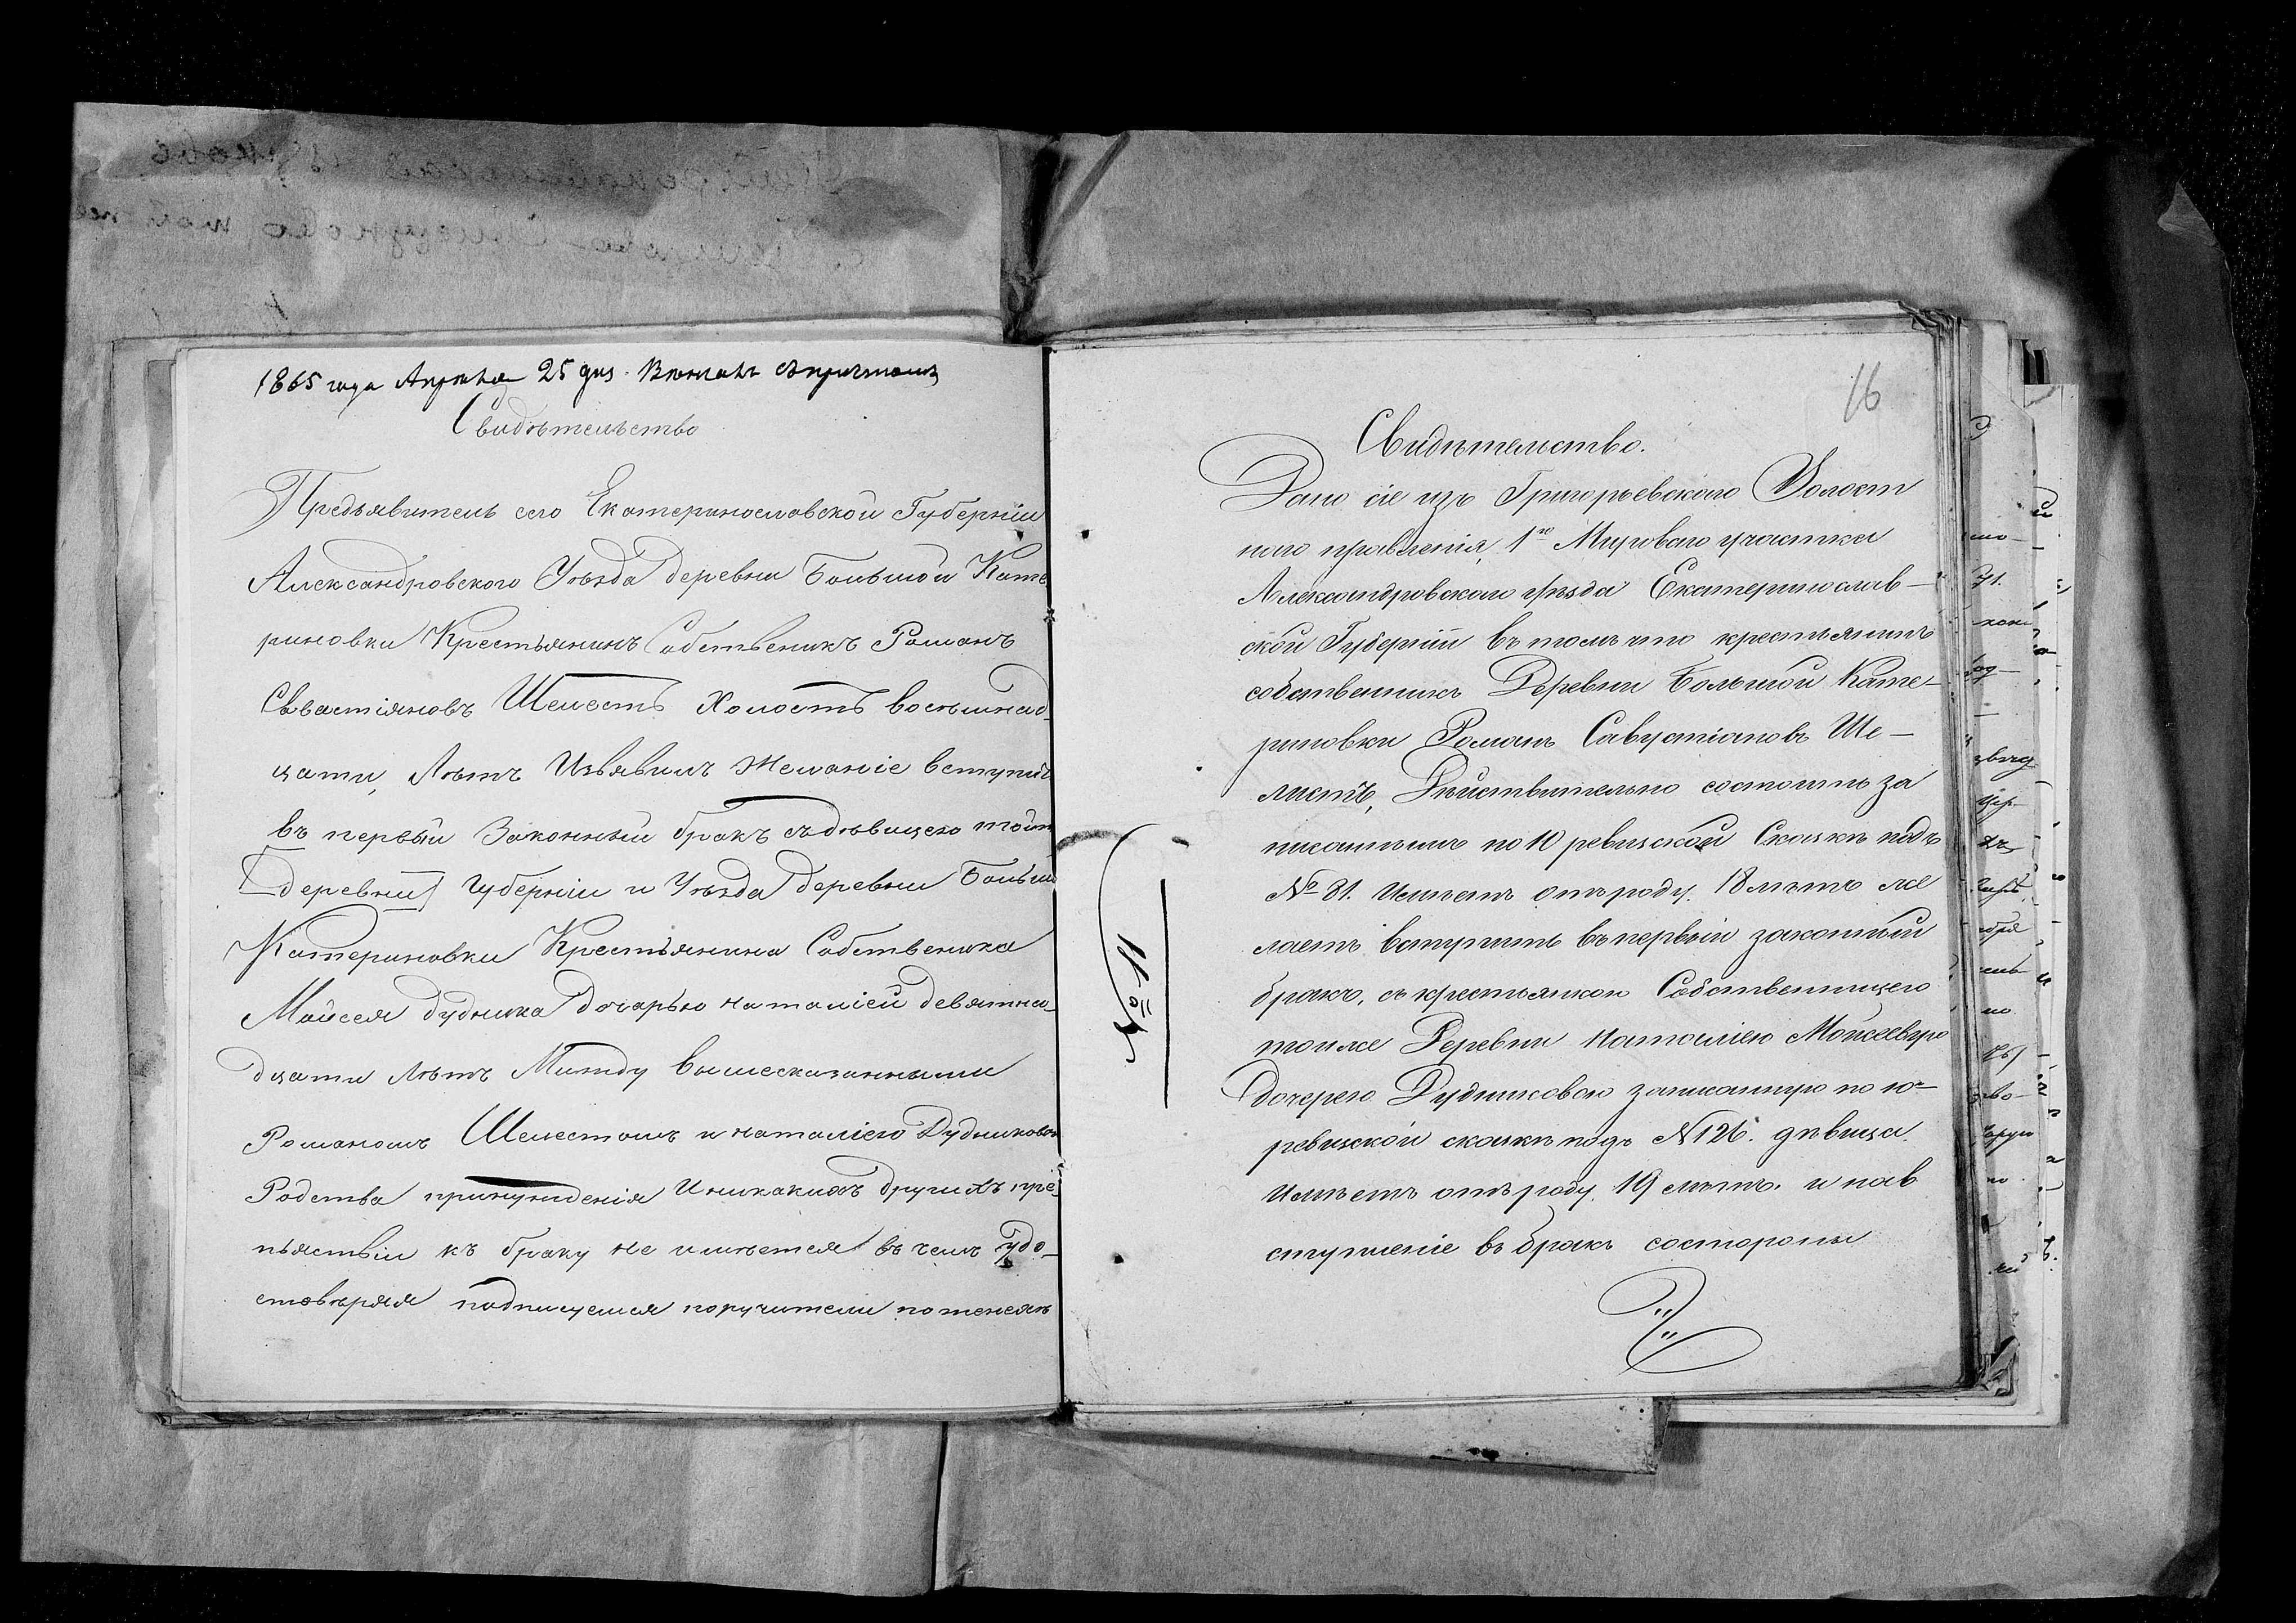 1865 года Апрѣля 25 дня. Вѣнчанъ съ причтомъ
Свидѣтельство
Предъявитель сего Екатеринославской Губерніи
Александровского Уѣзда деревни Большой Кате
риновки Крестьянинъ Собственикъ Романъ
Севастіяновъ Шелестъ Холостъ восѣмнад-
цати, Лѣтъ Изъявилъ Желаніе вступить
въ первый Законный бракъ съ дѣвицею тойже
[деревни] Губерніи и Уѣзда деревни Больш
Катериновки Крестьянина Собственика
Мойсея Дудника Дочарью Наталіей девятна-
дцати Лѣтъ Между вышесказанными
Романомъ Шелестомъ и Наталіею Дудниковою
Родства принужденія И никакихъ другихъ пре-
пъяствіи къ браку не имѣется въ чемъ удо-
стовѣряя подписуемся поручители по женехѣ
16
Свидѣтельство.
Дано сіе изъ Григорьевскаго Волост
наго правленія, 1го Мироваго участка
Александровскаго уѣзда Екатеринослав-
ской Губерніи въ томъ что крестьянинъ
собственникъ Деревни Большой Кате-
риновки Романъ Савустіановъ Ше-
листъ, Дѣйствительно состоитъ за
писаннымъ по 10 ревизской Сказкѣ подъ
№ 81. Имѣетъ отъ роду. 18 лѣтъ же
лаетъ вступить въ первый законный
бракъ, съ крестьянкою Собственницею
тойже Деревни Наталіею Мойсеевую
дочерею Дудниковою записанную по 10-
ревизской сказкѣ подъ № 126. дѣвица
Имѣетъ отъ роду. 19 лѣтъ. и на в
ступленіе въ бракъ со стороны
№ 11